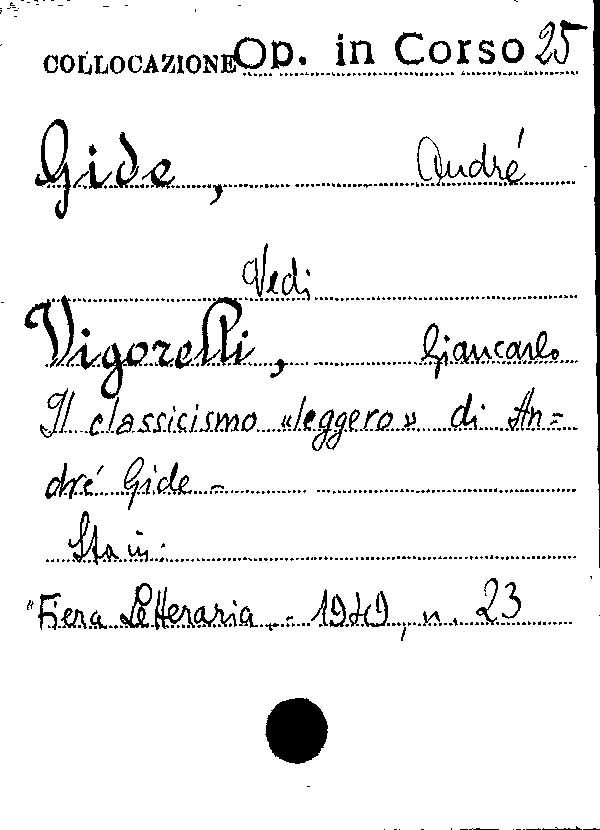 COLLOCAZIONE Op. in Corso 25
Gide, André
Vedi
Vigorelli, Giancarlo
Il classicismo «leggero» di An=
dré Gide -
Sta in:
"Fiera Letteraria. - 1949, n. 23